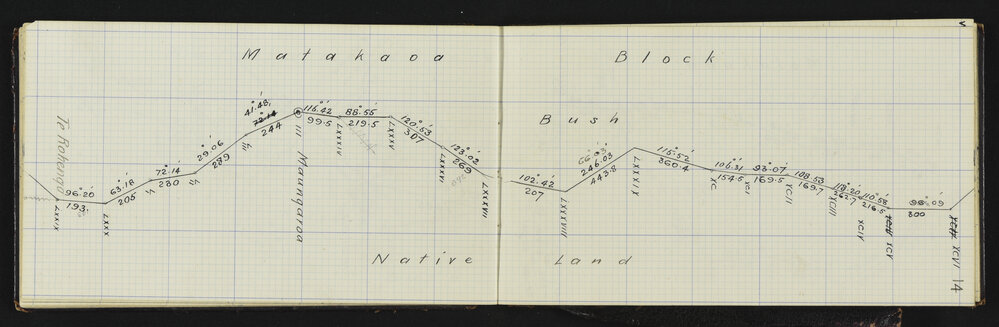 Matakaoa Block
Bush
Te Kohenga
96°.20'
193
LXXIX
LXXX
63°.18'
205
72°.14'
280
29°.06'
289
41°.48'
72.14
244
III Maungaroa
116°.42'
99.5
LXXXIV
88°.55'
219.5
LXXXV
120°.53'
307
LXXXVI
123°.02'
269
LXXXVII
102°.42'
207
LXXXVIII
66°.03'
246.03
443.8
LXXXIX
115°.52'
360.4
XC
106°.31'
154.5
XCI
93°.07'
169.5
XCII
108°.53'
169.7
XCIII
118°.20'
262.7
XCIV
110°.58'
216.5
XCIV XCV
98°.09'
800
XCVI
Native Land
14